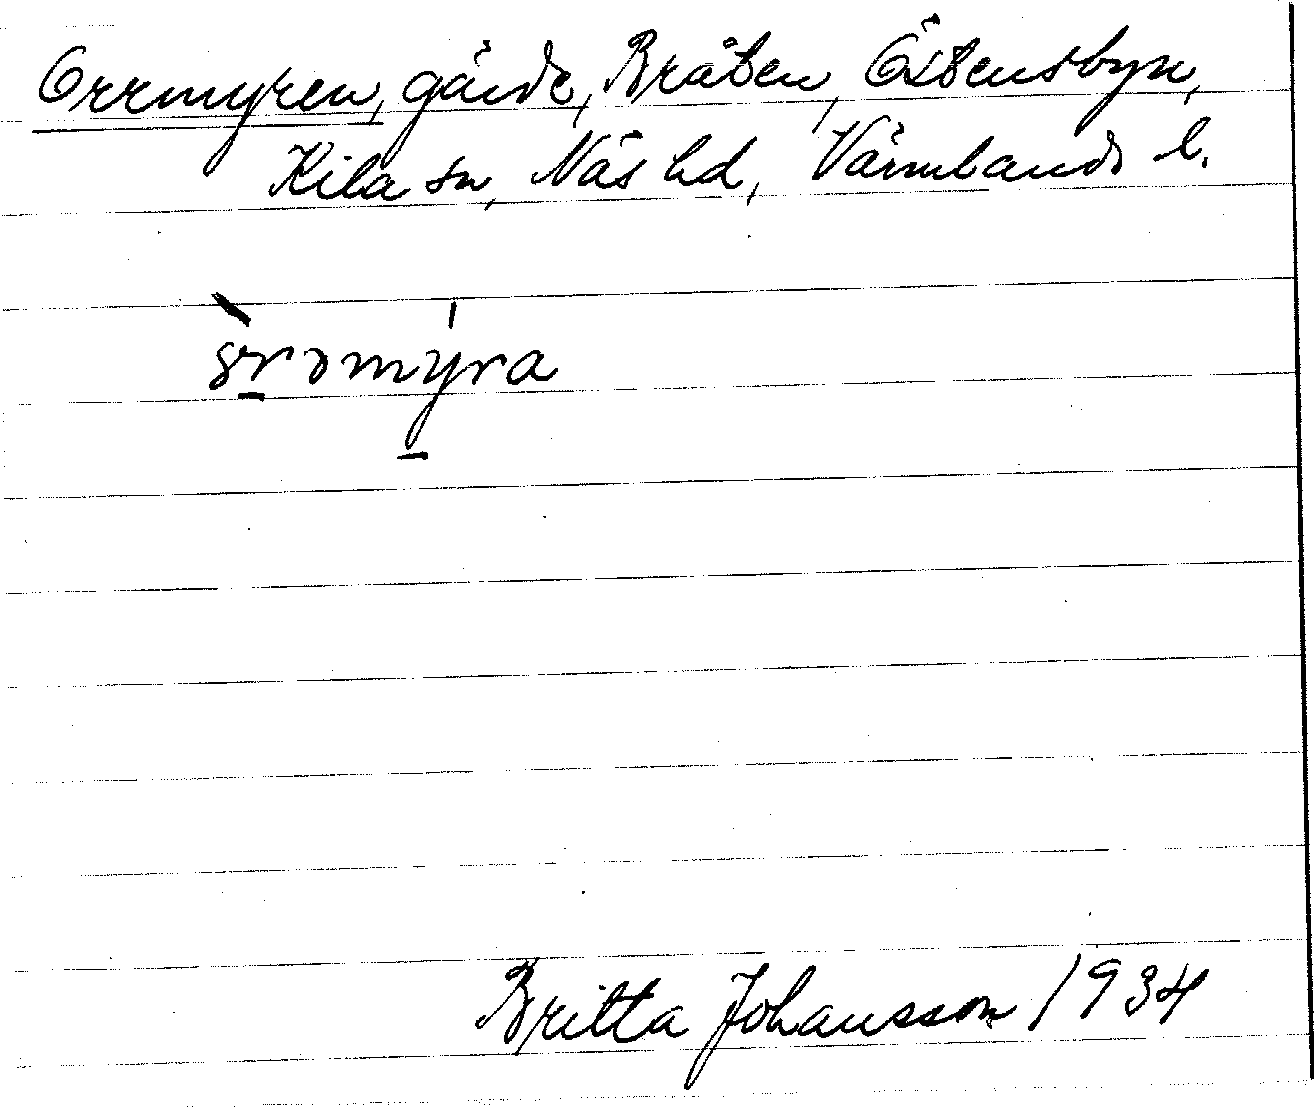 Orrmyren, gärde, Bråten, Östensbyn,
Kila sn, Näs hd, Värmlands l.
Britta Johansson 1934